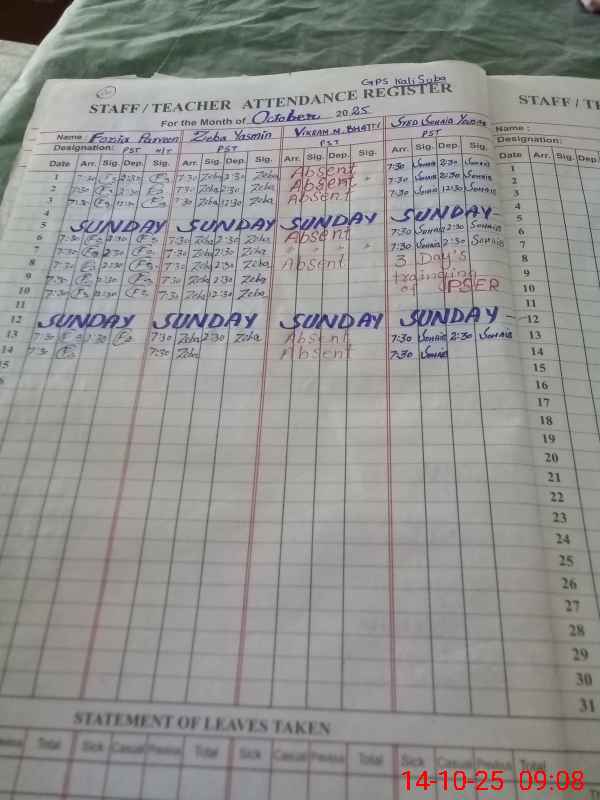 GPS Kali Suba
STAFF / TEACHER ATTENDANCE REGISTER
STAFF / T
For the Month of October 2025
Name : Fozia Parveen Zeba Yasmin VIKRAM M. BHATTI SYED SOHAIB
Name :
Designation: PST H/T PST PST PST
Designation:
Date Arr. Sig. Dep. Sig. Arr. Sig. Dep. Sig. Arr. Sig. Dep. Sig. Arr. Sig. Dep. Sig. Date
1 7:30 Fz 2:30 Fz 7:30 Zeba 2:30 Zeba Absent 7:30 SOHAIB 2:30 SOHAIB 1
2 7:30 Fz 2:30 Fz 7:30 Zeba 2:30 Zeba Absent " 7:30 SOHAIB 2:30 SOHAIB 2
3 7:30 Fz 12:30 Fz 7:30 Zeba 12:30 Zeba Absent 7:30 SOHAIB 12:30 SOHAIB 3
4 4
5 SUNDAY SUNDAY SUNDAY SUNDAY 5
6 7:30 Fz 2:30 Fz 7:30 Zeba 2:30 Zeba Absent 7:30 SOHAIB 2:30 SOHAIB 6
7 7:30 Fz 2:30 Fz 7:30 Zeba 2:30 Zeba " " " 7:30 SOHAIB 2:30 SOHAIB 7
8 7:30 Fz 2:30 Fz 7:30 Zeba 2:30 Zeba Absent 3 Day's 8
9 7:30 Fz 2:30 Fz 7:30 Zeba 2:30 Zeba trainging 9
10 7:30 Fz 12:30 Fz 7:30 Zeba 12:30 Zeba of PSER 10
11 11
12 SUNDAY SUNDAY SUNDAY SUNDAY 12
13 7:30 Fz 2:30 Fz 7:30 Zeba 2:30 Zeba Absent 7:30 SOHAIB 2:30 SOHAIB 13
14 7:30 Fz 7:30 Zeba Absent 7:30 SOHAIB 14
15 15
16
17
18
19
20
21
22
23
24
25
26
27
28
29
30
31
STATEMENT OF LEAVES TAKEN
Total Sick Casual Previous Total Sick Casual Previous Total Sick Casual Previous Total
14-10-25 09:08